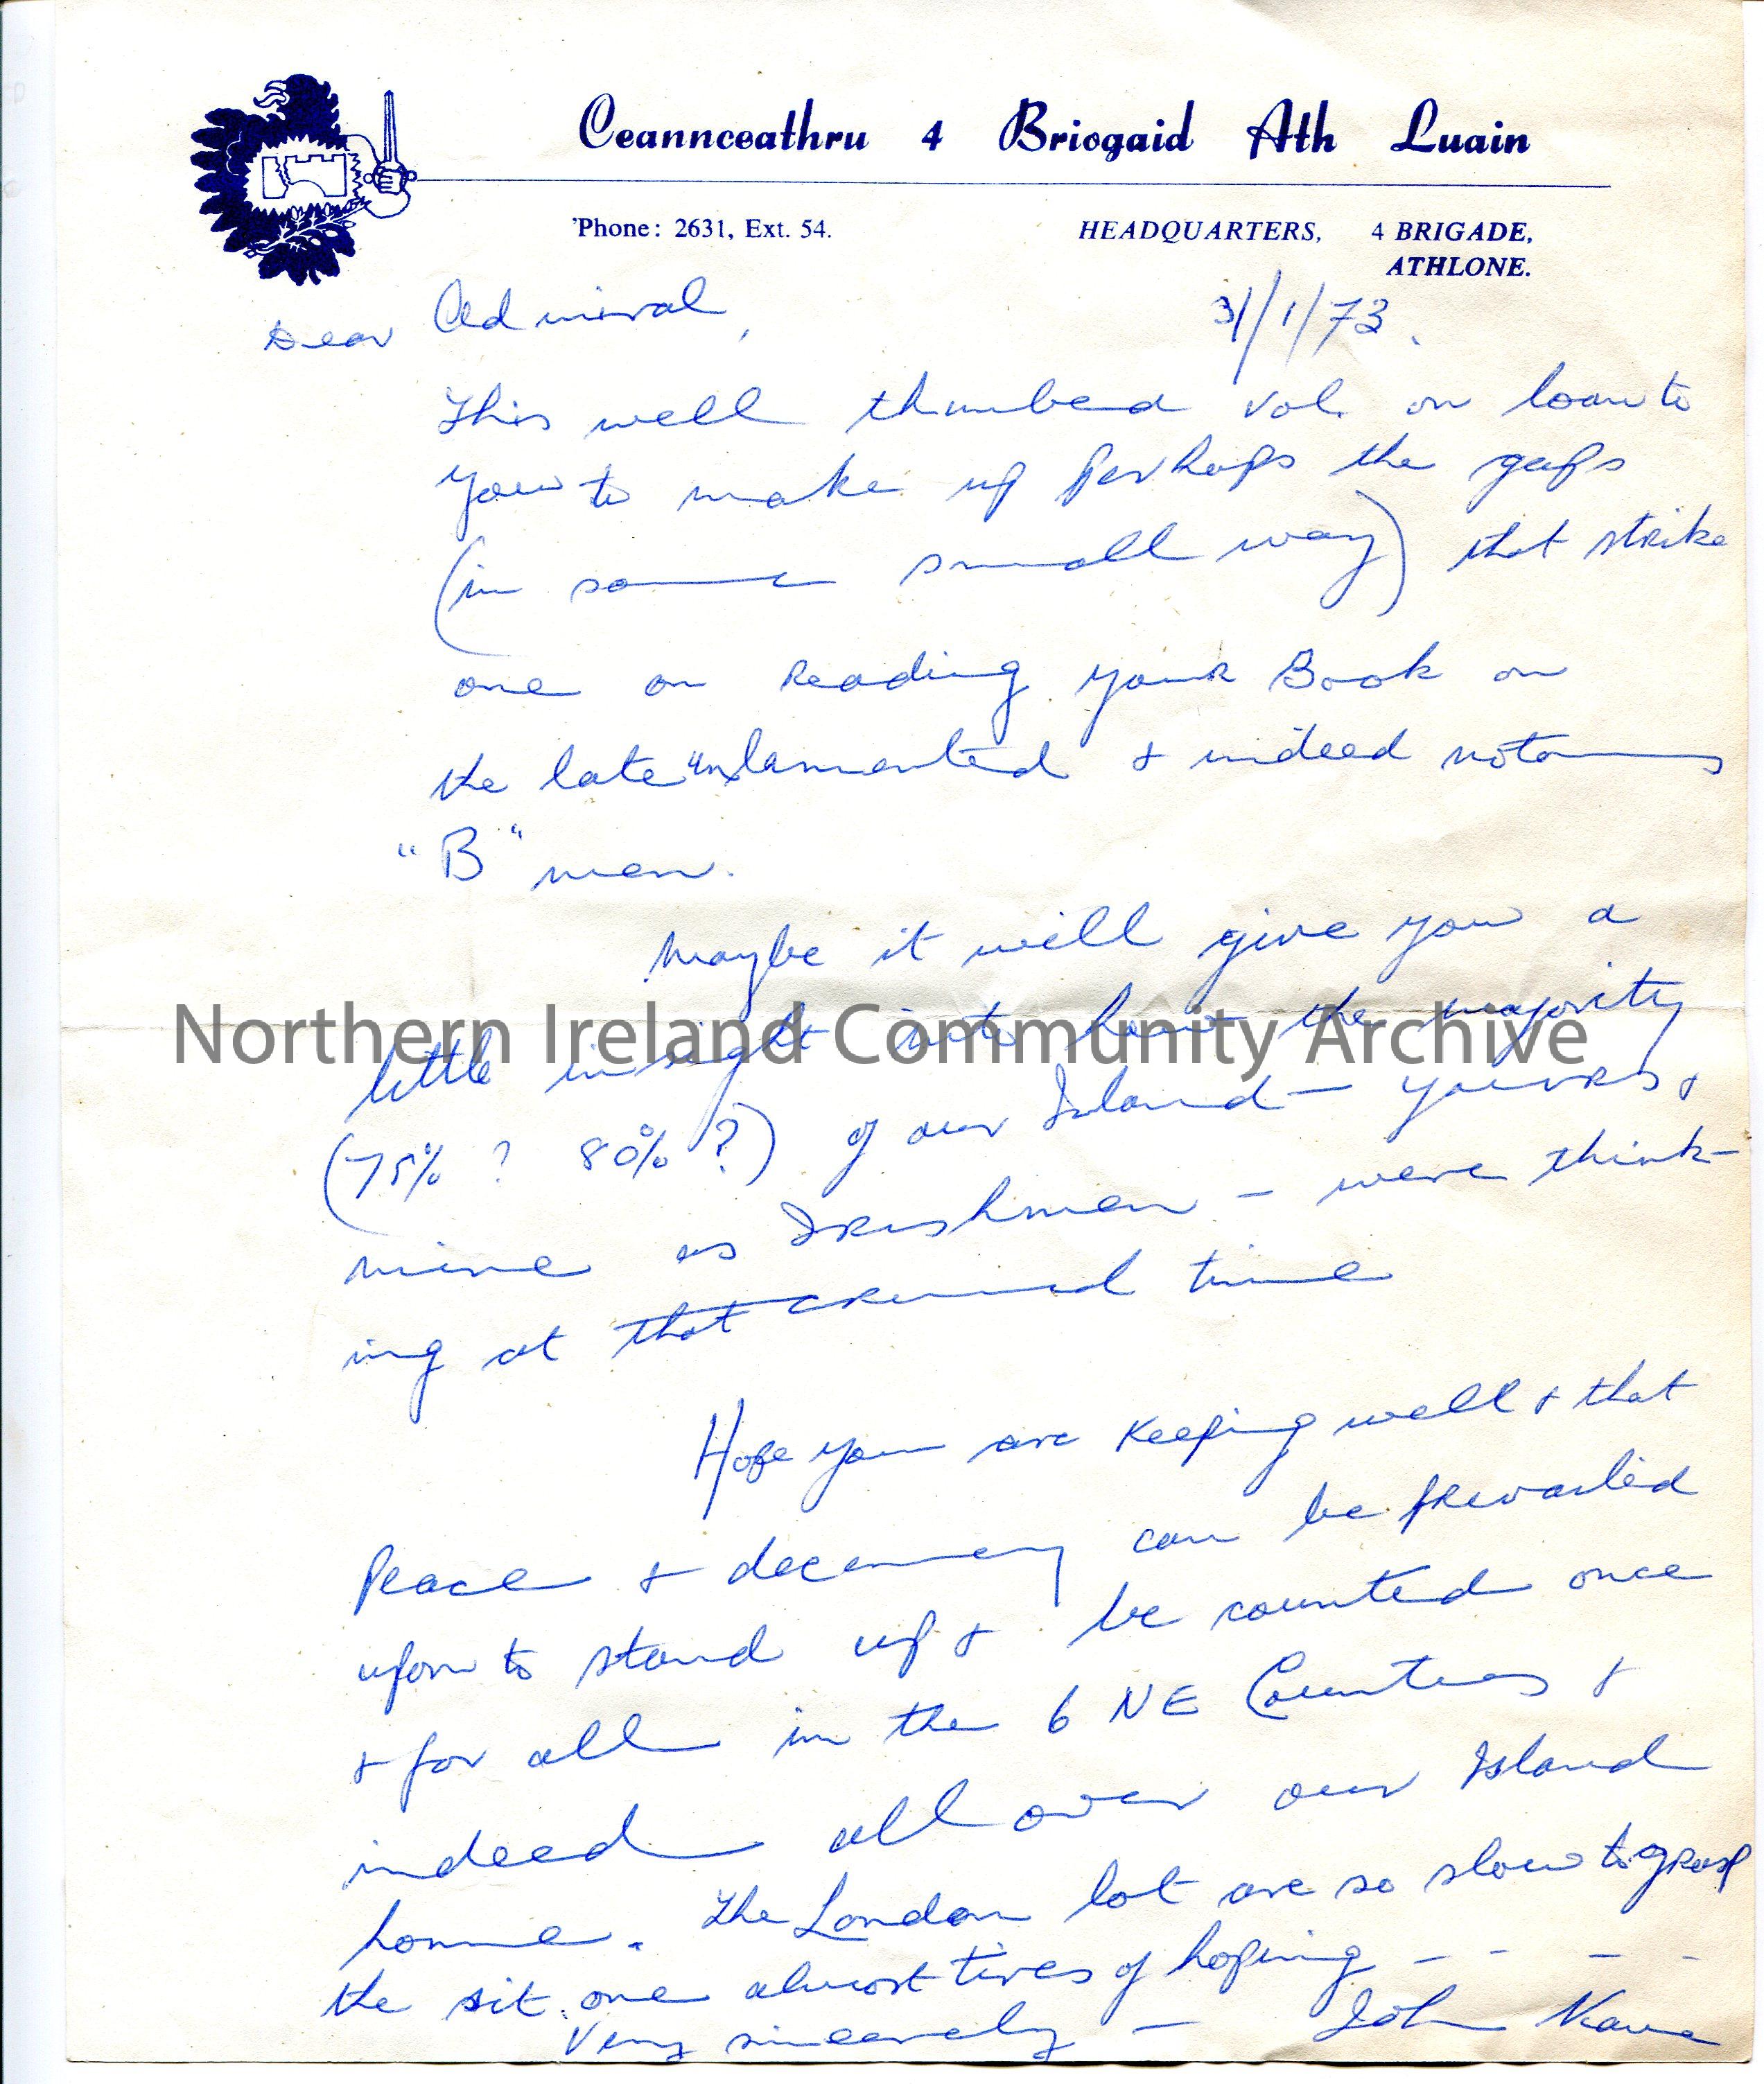 Ceannceathru 4 Briogaid Ath Luain
'Phone: 2631, Ext. 54.
HEADQUARTERS, 4 BRIGADE,
ATHLONE.
Dear Admiral,
31/1/73.
This well thumbed vol. on loan to
you to make up perhaps the gaps
(in some small way) that strike
one on reading your Book on
the late unlamented & indeed notorious
"B" men.
Maybe it will give you a
little insight into how the majority
(75% ? 80% ?) of our Island — yours &
mine as Irishmen — were think-
ing at that time
Hope you are keeping well & that
Peace & decency can be prevailed
upon to stand up & be counted once
& for all in the 6 NE Counties &
indeed all over our Island
home. The London lot are so slow to grasp
the sit. one almost tires of hoping - - - -
Very sincerely — John
Northern Ireland Community Archive